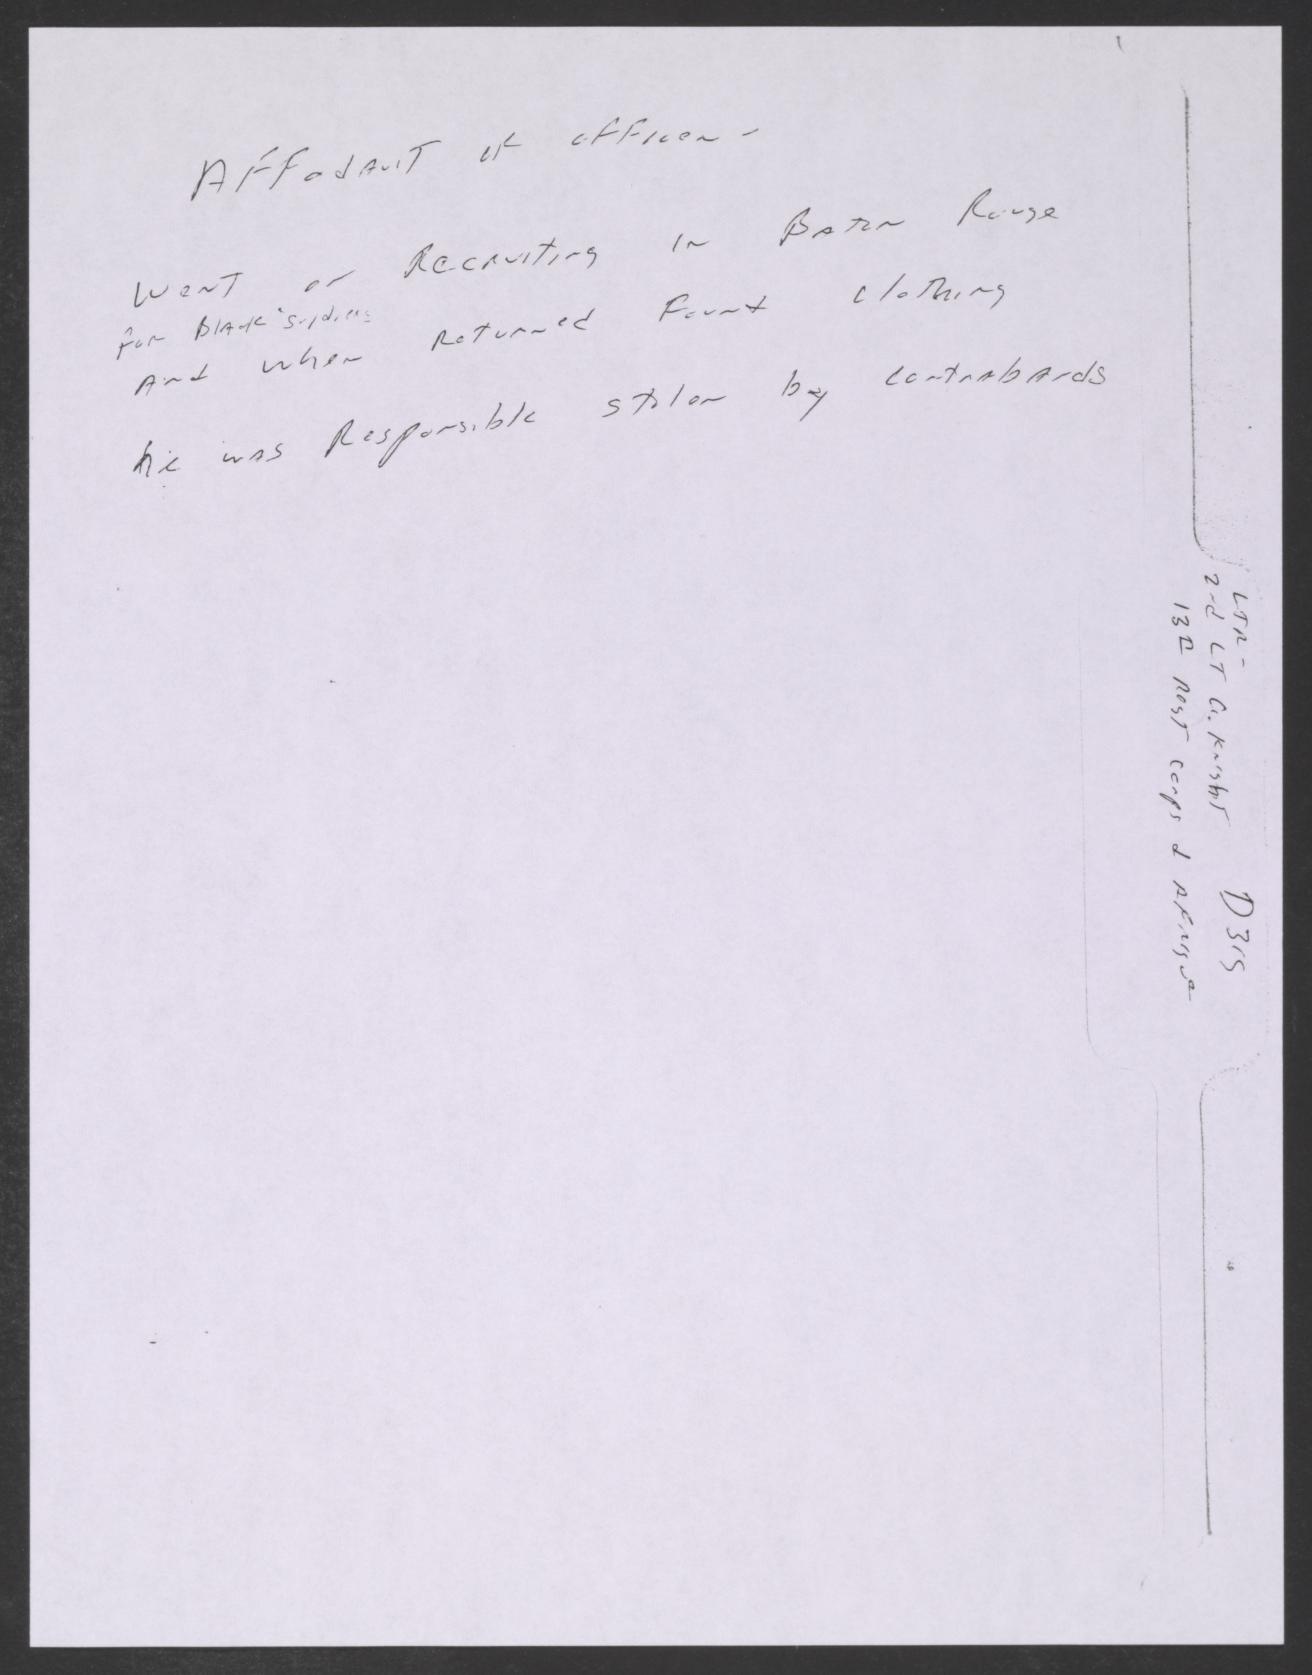 AFFodAvIT of officer -
Went on Recruiting in Baton Rouge
For Black soldiers
And when Returned Found clothing
he was Responsible stolen by contrabands
LTR -
2nd LT G. Knight D315
13th Regt Corps d Afrique